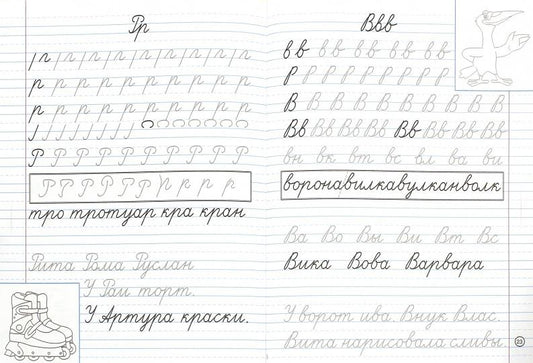 Рр
р р р р р р р р р
р р р р р р р р р
Р Р Р Р Р Р Р Р Р
Р Р Р Р Р Р Р р р р р
тро тротуар кра кран
Рита Рома Руслан
У Раи торт.
У Артура краски.
Ввв
вв вв вв вв вв вв
Р Р Р Р Р Р Р Р Р
В В В В В В В В В
Вв Вв Вв Вв Вв Вв Вв
вн вк вт вс вл ва ви
воронавилкавулканволк
Ва Во Вы Ви Вт Вс
Вика Вова Варвара
У ворот ива. Внук Влас.
Вита нарисовала сливы.
23